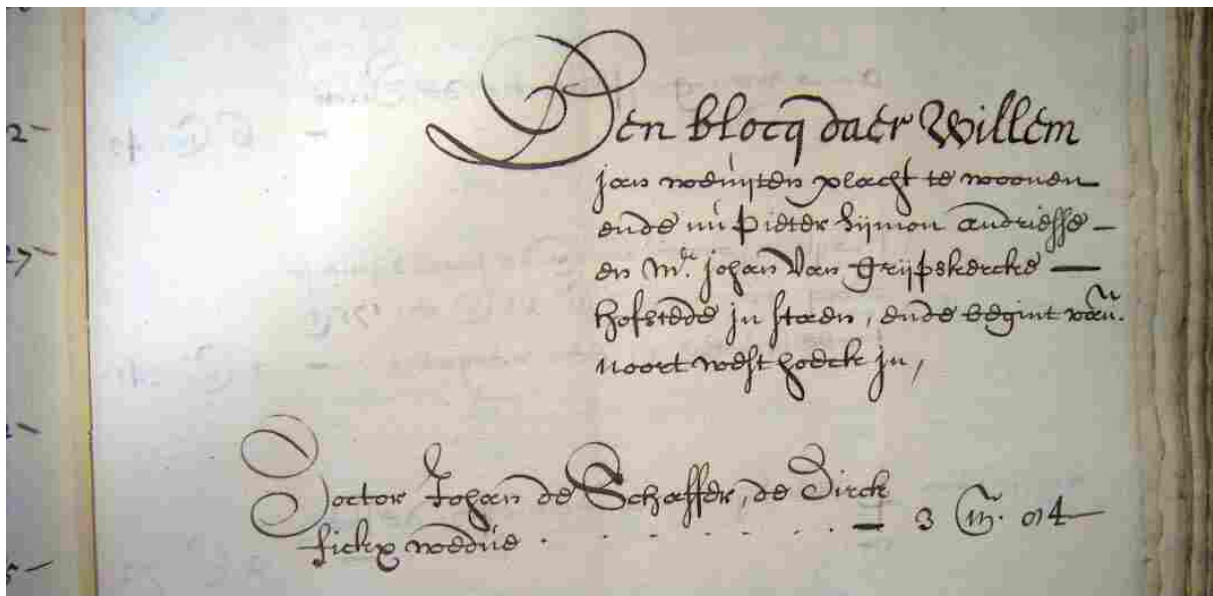 Den blocq daer Willem
jan weuijten placht te woonen
ende nú Pieter Sijmon Andriesse
en Mr. johan Van Grijpskercke
hofstede jn staen, ende begint
noort west hoeck jn,
Doctor Johan de Schaffer, de Dirck
sickx wedúe . . . . . . . 3 014
2
27